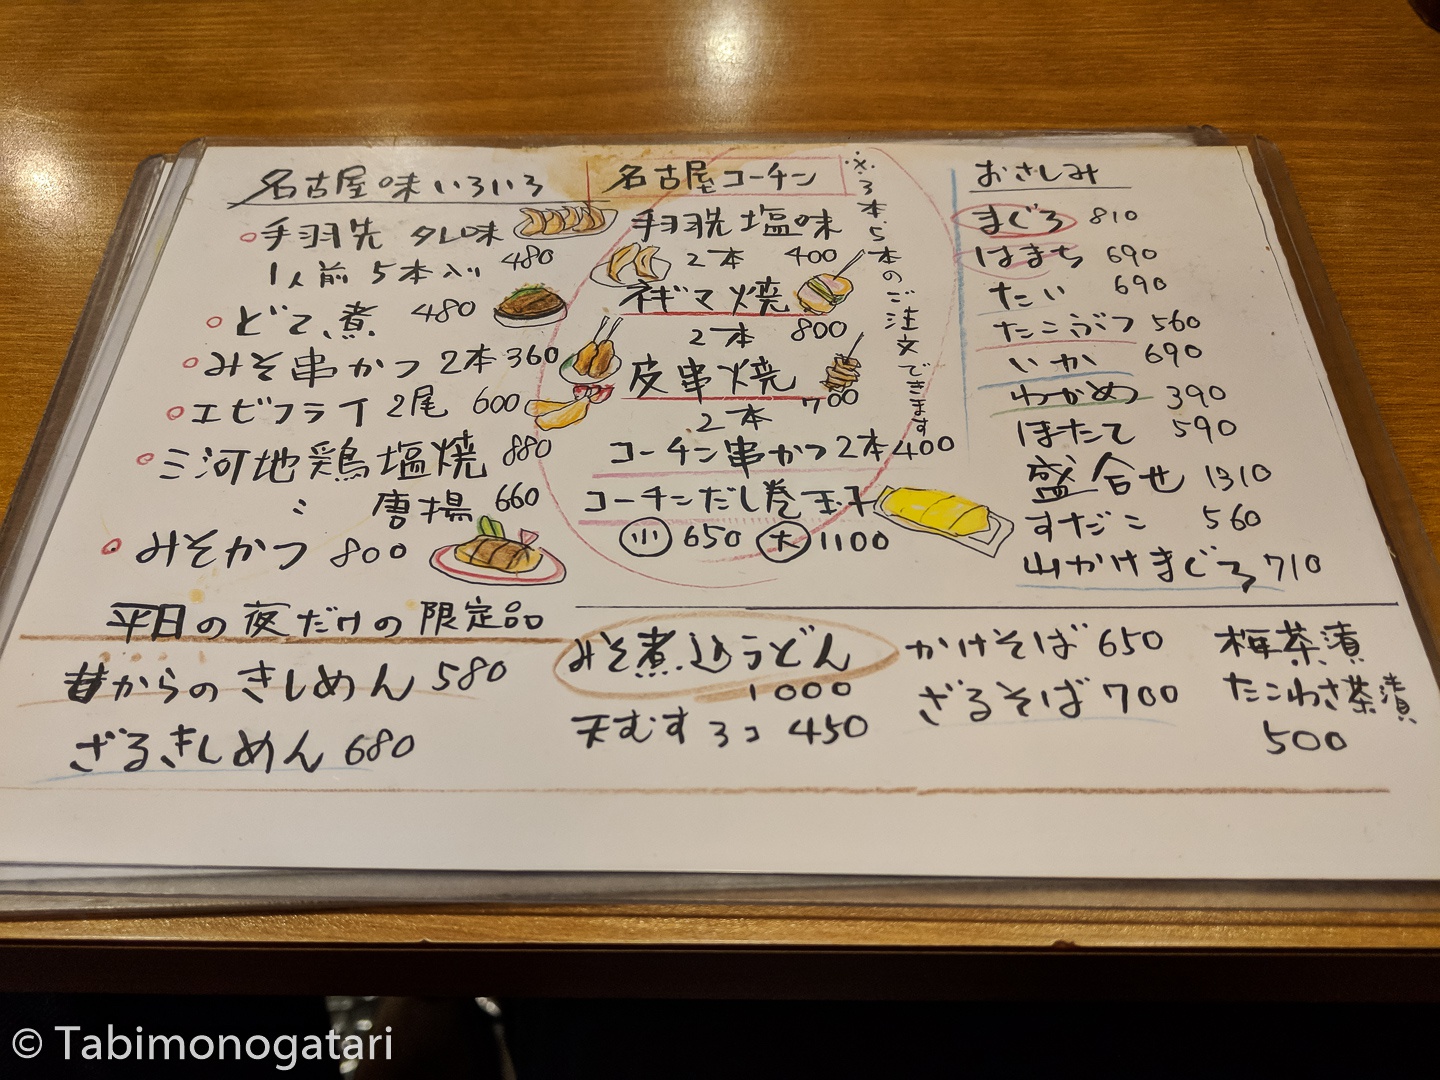 名古屋味いろいろ
手羽先 タレ味
1人前 5本入り 480
どて煮 480
みそ串かつ 2本 360
エビフライ 2尾 600
三河地鶏塩焼 880
〃 唐揚 660
みそかつ 800
名古屋コーチン
手羽先塩味
2本 400
ネギマ焼
2本 800
皮串焼
2本 700
コーチン串かつ 2本 400
コーチンだし巻玉子
小 650 大 1100
※3本、5本のご注文できます
おさしみ
まぐろ 810
はまち 690
たい 690
たこぶつ 560
いか 690
わかめ 390
ほたて 590
盛合せ 1310
すだこ 560
山かけまぐろ 710
平日の夜だけの限定品
昔からのきしめん 580
ざるきしめん 680
みそ煮込うどん
1000
天むす 3コ 450
かけそば 650
ざるそば 700
梅茶漬
たこわさ茶漬
500
© Tabimonogatari